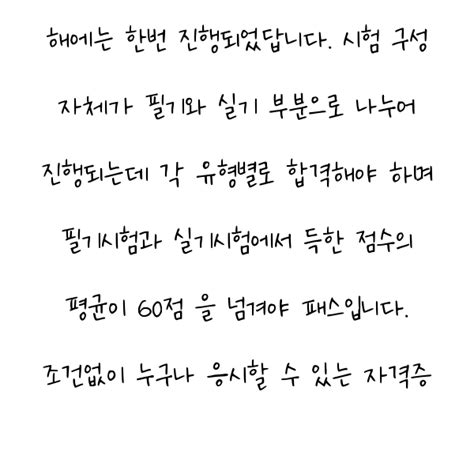 해에는 한번 진행되었답니다. 시험 구성
자체가 필기와 실기 부분으로 나누어
진행되는데 각 유형별로 합격해야 하며
필기시험과 실기시험에서 득한 점수의
평균이 60점 을 넘겨야 패스입니다.
조건없이 누구나 응시할 수 있는 자격증